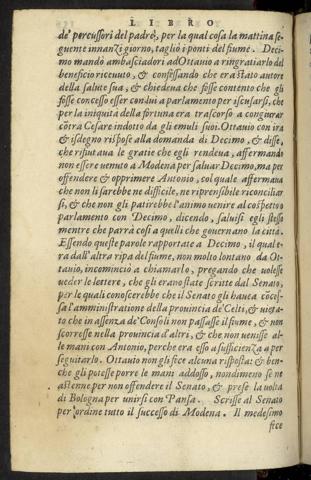 LIBRO
de' percussori del padre, per la qual cosa la mattina se-
guente innanzi giorno, tagliò i ponti del fiume. Deci
mo mandò ambasciadori ad Ottauio a ringratiarlo del
beneficio riceuuto, & confessando che era stato autore
della salute sua, & chiedeua che fosse contento che gli
fosse concesso esser con lui a parlamento per iscusarsi, che
per la iniquita della fortuna era trascorso a congiurar
cōtra Cesare indotto da gli emuli suoi. Ottauio con ira
& isdegno rispose alla domanda di Decimo, & disse,
che rifiutaua le gratie che egli rendeua, affermando
non essere uenuto a Modena per saluar Decimo, ma per
offendere & opprimere Antonio, col quale affermaua
che non li sarebbe ne difficile, ne riprensibile riconciliar
si, & che non gli patirebbe l'animo uenire al cospetto o
parlamento con Decimo, dicendo, saluisi egli stesso
mentre che parrà cosi a quelli che gouernano la città.
Essendo queste parole rapportate a Decimo, il qual e-
ra dall'altra ripa del fiume, non molto lontano da Ot-
tauio, incominciò a chiamarlo, pregando che uolesse
ueder le lettere, che gli erano state scritte dal Senato,
per le quali conoscerebbe che il Senato gli hauea cōces-
sa l'amministratione della prouincia de' Celti, & uieta-
to che in assenza de' Consoli non passasse il fiume, & non
scorresse nella prouincia d'altri, & che non uenisse al-
le mani con Antonio, perche era esso a sufficienza a per
seguitarlo. Ottauio non gli fice alcuna risposta: & ben-
che gli potesse porre le mani addosso, nondimeno se ne
astenne per non offendere il Senato, & prese la uolta
di Bologna per unirsi con Pansa. Scrisse al Senato
per ordine tutto il successo di Modena. Il medesimo
fice